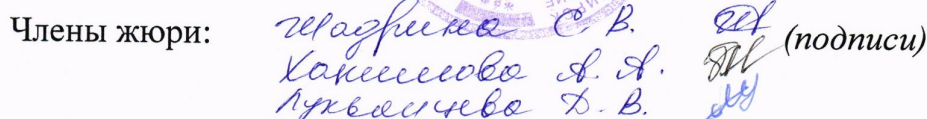 Члены жюри: Шадрина С. В. (подписи)
Хакимова А. А.
Лукьянцева Д. В.